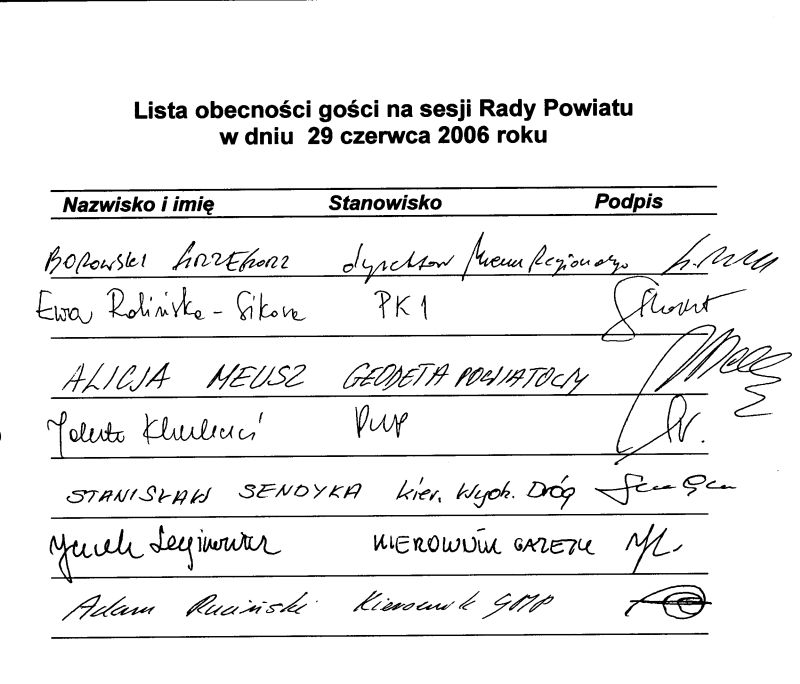 Lista obecności gości na sesji Rady Powiatu
w dniu 29 czerwca 2006 roku
Nazwisko i imię Stanowisko Podpis
BOROWSKI GRZEGORZ dyrektor Muzeum Regionalnego
Ewa Rolińska - Sikora PK1
ALICJA MEUSZ GEODETA POWIATOWY
Jolanta PUP
STANISŁAW SENDYKA kier. Wydz. Dróg
Jacek KIEROWNIK GAZETY
Adam Ruciński Kierownik